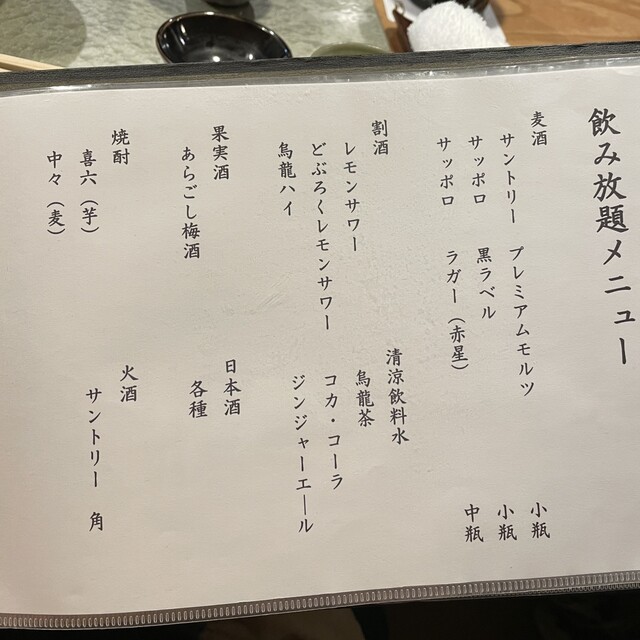 飲み放題メニュー
麦酒
サントリー プレミアムモルツ 小瓶
サッポロ 黒ラベル 小瓶
サッポロ ラガー（赤星） 中瓶
割酒
レモンサワー
どぶろくレモンサワー
烏龍ハイ
清涼飲料水
烏龍茶
コカ・コーラ
ジンジャーエール
果実酒
あらごし梅酒
日本酒
各種
焼酎
喜六（芋）
中々（麦）
火酒
サントリー 角